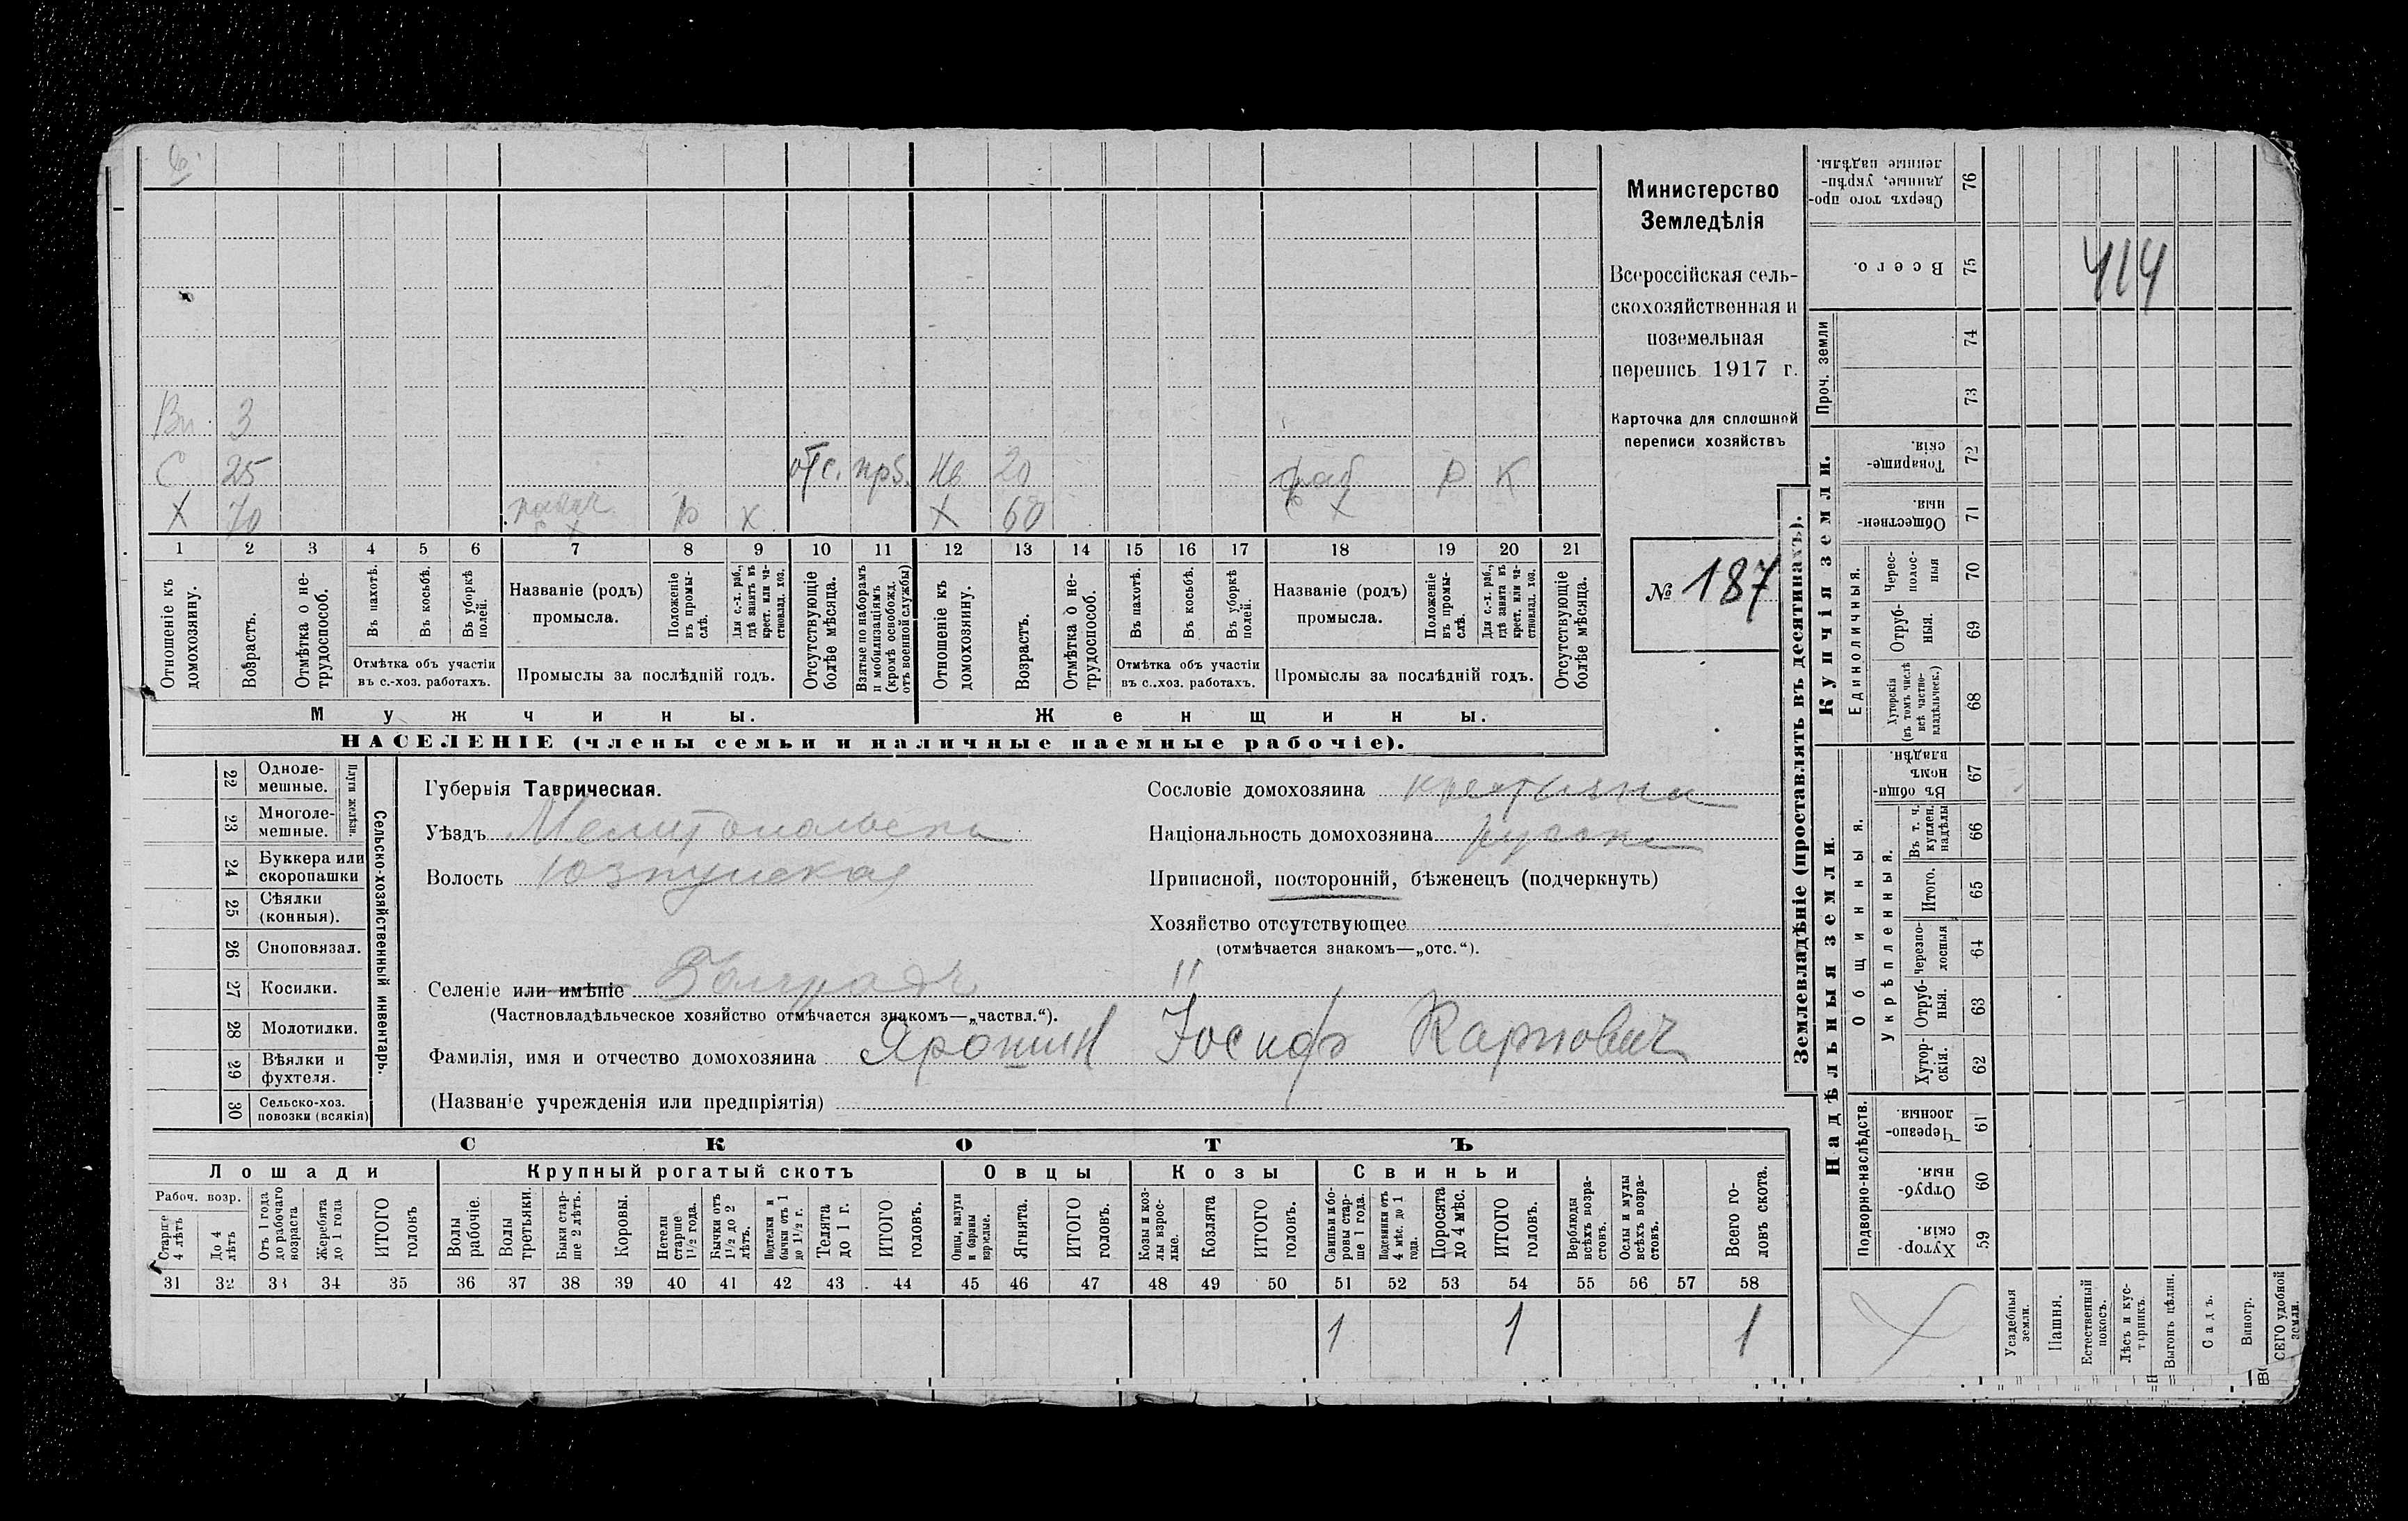 Вн 3
С 25 отс. 20 Р К
Х 70 Р К Х 60 Х
1 2 3 4 5 6 7 8 9 10 11 12 13 14 15 16 17 18 19 20 21
Отношеніе къ домохозяину.
Возрастъ.
Отмѣтка о нетрудоспособ.
Въ пахотѣ.
Въ косьбѣ.
Въ уборкѣ полей.
Отмѣтка объ участіи
въ с.-хоз. работахъ.
Названіе (родъ)
промысла.
Положеніе въ промыслѣ.
Для с.-х. раб., гдѣ занятъ въ крест. или частновлад. хоз.
Промыслы за послѣдній годъ.
Отсутствующіе болѣе мѣсяца.
Взятые по наборамъ и мобилизаціямъ (кромѣ освобожд. отъ военной службы)
Отношеніе къ домохозяину.
Возрастъ.
Отмѣтка о нетрудоспособ.
Въ пахотѣ.
Въ косьбѣ.
Въ уборкѣ полей.
Отмѣтка объ участіи
въ с.-хоз. работахъ.
Названіе (родъ)
промысла.
Положеніе въ промыслѣ.
Для с.-х. раб., гдѣ занята въ крест. или частновлад. хоз.
Промыслы за послѣдній годъ.
Отсутствующіе болѣе мѣсяца.
Мужчины. Женщины.
НАСЕЛЕНІЕ (члены семьи и наличные наемные рабочіе).
Министерство
Земледѣлія
Всероссійская сель-
скохозяйственная и
поземельная
перепись 1917 г.
Карточка для сплошной
переписи хозяйствъ
№ 187
22 Одноле-
мешные.
23 Многоле-
мешные.
Плуги желѣзн.
24 Буккера или
скоропашки
25 Сѣялки
(конныя).
26 Сноповязал.
27 Косилки.
28 Молотилки.
29 Вѣялки и
фухтеля.
30 Сельско-хоз.
повозки (всякія)
Сельско-хозяйственный инвентарь.
Губернія Таврическая.
Уѣздъ Мелитопольск
Волость Юзкуйская
Селеніе или имѣніе Болградъ
(Частновладѣльческое хозяйство отмѣчается знакомъ—„частвл.“).
Фамилія, имя и отчество домохозяина Ярошин Іосифъ Карпович
(Названіе учрежденія или предпріятія)
Сословіе домохозяина крестьянин
Національность домохозяина русск
Приписной, посторонній, бѣженецъ (подчеркнуть)
Хозяйство отсутствующее
(отмѣчается знакомъ—„отс.“).
СКОТЪ
Лошади Крупный рогатый скотъ Овцы Козы Свиньи
Рабоч. возр.
Старше 4 лѣтъ
До 4 лѣтъ
Отъ 1 года до рабочаго возраста
Жеребята до 1 года
ИТОГО головъ
Волы рабочіе.
Волы третьяки.
Быки старше 2 лѣтъ.
Коровы.
Нетели старше 1½ года.
Бычки отъ 1½ до 2 лѣтъ.
Подтелки и бычки отъ 1 до 1½ г.
Телята до 1 г.
ИТОГО головъ.
Овцы, валухи и бараны взрослые.
Ягнята.
ИТОГО головъ.
Козы и козлы взрослые.
Козлята
ИТОГО головъ.
Свиньи и боровы старше 1 года.
Подсвинки отъ 4 мѣс. до 1 года.
Поросята до 4 мѣс.
ИТОГО головъ.
Верблюды всѣхъ возрастовъ.
Ослы и мулы всѣхъ возрастовъ.
Всего головъ скота.
31 32 33 34 35 36 37 38 39 40 41 42 43 44 45 46 47 48 49 50 51 52 53 54 55 56 57 58
1 1 1
Землевладѣніе (проставлять въ десятинахъ).
Сверхъ того проданные, укрѣпленные надѣлы. 76
Всего. 75
414
Проч. земли
74
73
Купчія земли.
Товарищескія. 72
Общественныя. 71
Единоличныя.
Чересполосныя 70
Отрубныя. 69
Хуторскія (въ томъ числѣ всѣ частновладѣльческ.) 68
Надѣльныя земли.
Общинныя.
Въ общинномъ владѣн. 67
Укрѣпленныя.
Въ т. ч. куплен. надѣлы 66
Итого. 65
Черезполосныя 64
Отрубныя. 63
Хуторскія. 62
Подворно-наслѣдств.
Черезполосныя. 61
Отрубныя. 60
Хуторскія. 59
Усадебныя земли.
Пашня.
Естественный покосъ.
Лѣсъ и кустарникъ.
Выгонъ цѣлин.
Садъ.
Виногр.
ВСЕГО удобной земли.